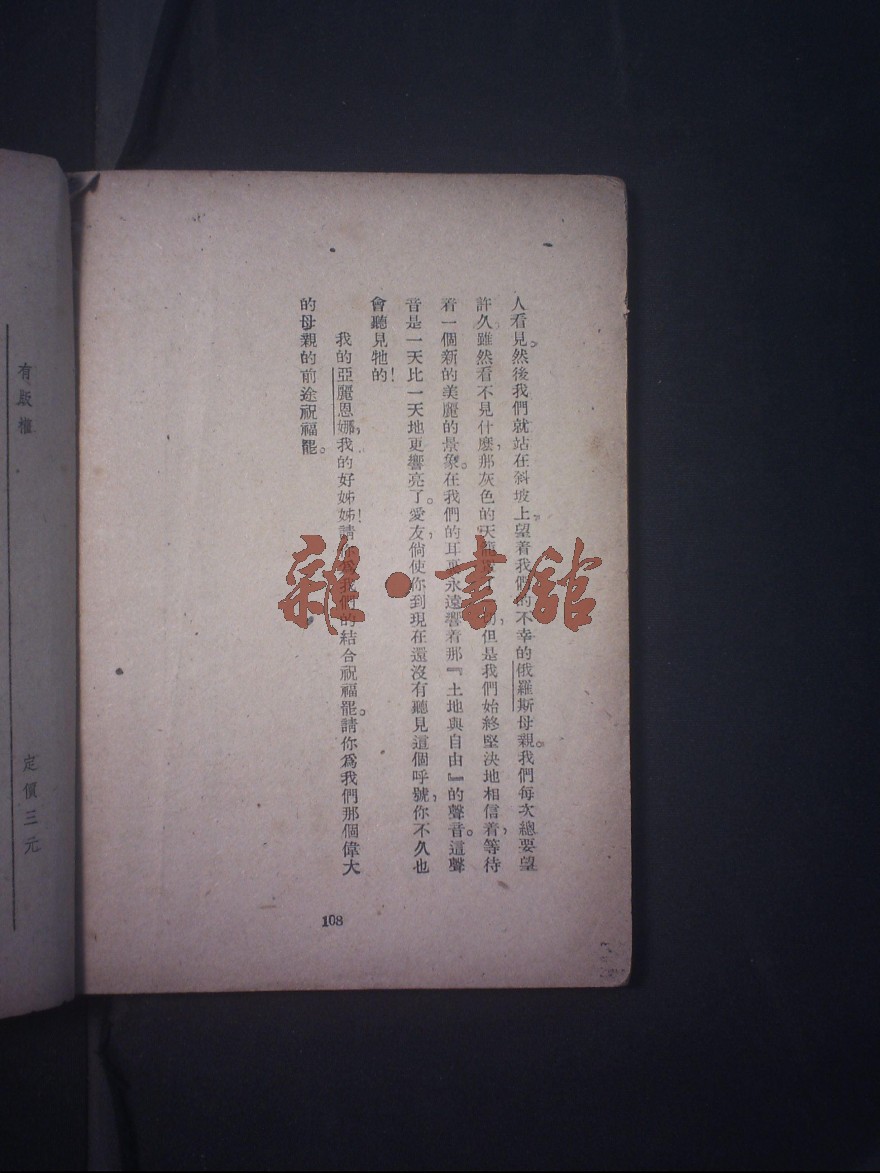 人看見。然後我們就站在斜坡上，望着我們的不幸的俄羅斯母親。我們每次總要望
許久。雖然看不見什麼，那灰色的天，但是我們始終堅決地相信着，等待
着一個新的美麗的景象。在我們的耳裏永遠響着那『土地與自由』的聲音。這聲
音是一天比一天地更響亮了。愛友，倘使你到現在還沒有聽見這個呼號，你不久也
會聽見牠的！
我的亞麗恩娜，我的好姊姊！請你爲我們的結合祝福罷。請你爲我們那個偉大
的母親的前途祝福罷。
108
雜·書館
有版權
定價三元